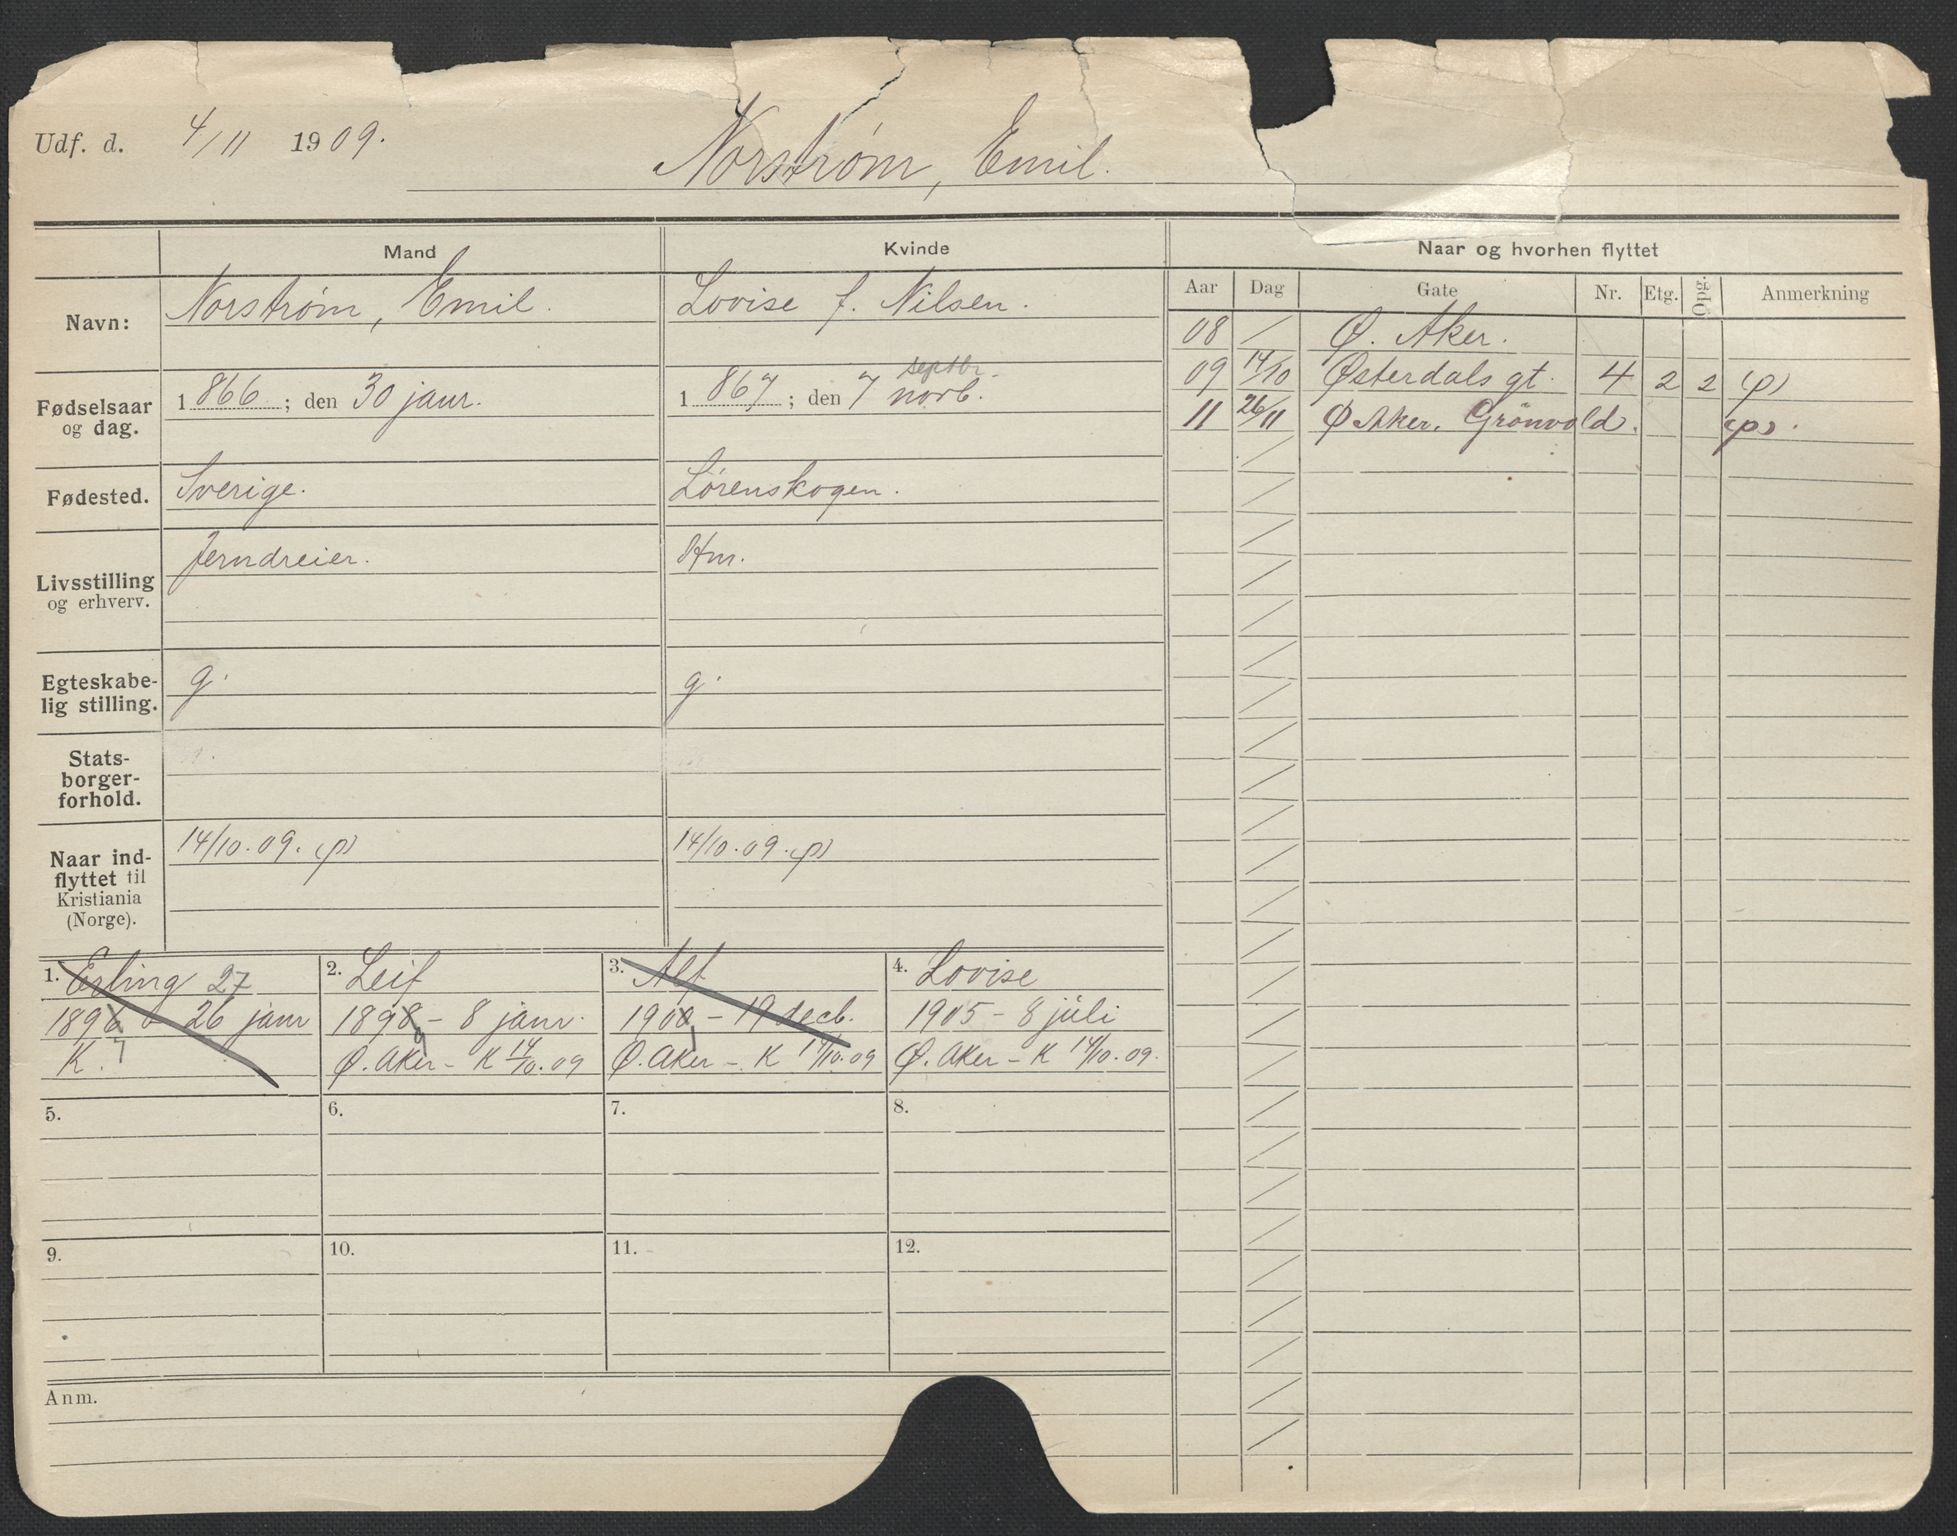 Udf. d. 4/11 1909.
Norstrøm, Emil.
Mand Kvinde
Navn: Norstrøm, Emil. Lovise f. Nilsen.
Fødselsaar og dag. 1866; den 30 jaur. 1867; den 7 norb. septbr.
Fødested. Sverige. Lørenskogen.
Livsstilling og erhverv. Jerndreier. Hm.
Egteskabe-
lig stilling. g. g.
Stats-
borger-
forhold.
Naar ind-
flyttet til
Kristiania
(Norge). 14/10.09. (p) 14/10.09.(p)
1. Erling 27
1896 7 - 26 janr
K.
2. Leif
1898 9 - 8 janr.
Ø. Aker - K 14/10.09
3. Alf
1900 1 - 19 decb.
Ø. Aker - K 14/10.09
4. Lovise
1905 - 8 júli
Ø. Aker - K 14/10.09.
5. 6. 7. 8.
9. 10. 11. 12.
Anm.
Naar og hvorhen flyttet
Aar Dag Gate Nr. Etg. Opg. Anmerkning
08 / Ø. Aker.
09 14/10 Østerdals gt. 4 2 2 (p)
11 26/11 Ø Aker. Grönvold. (p).